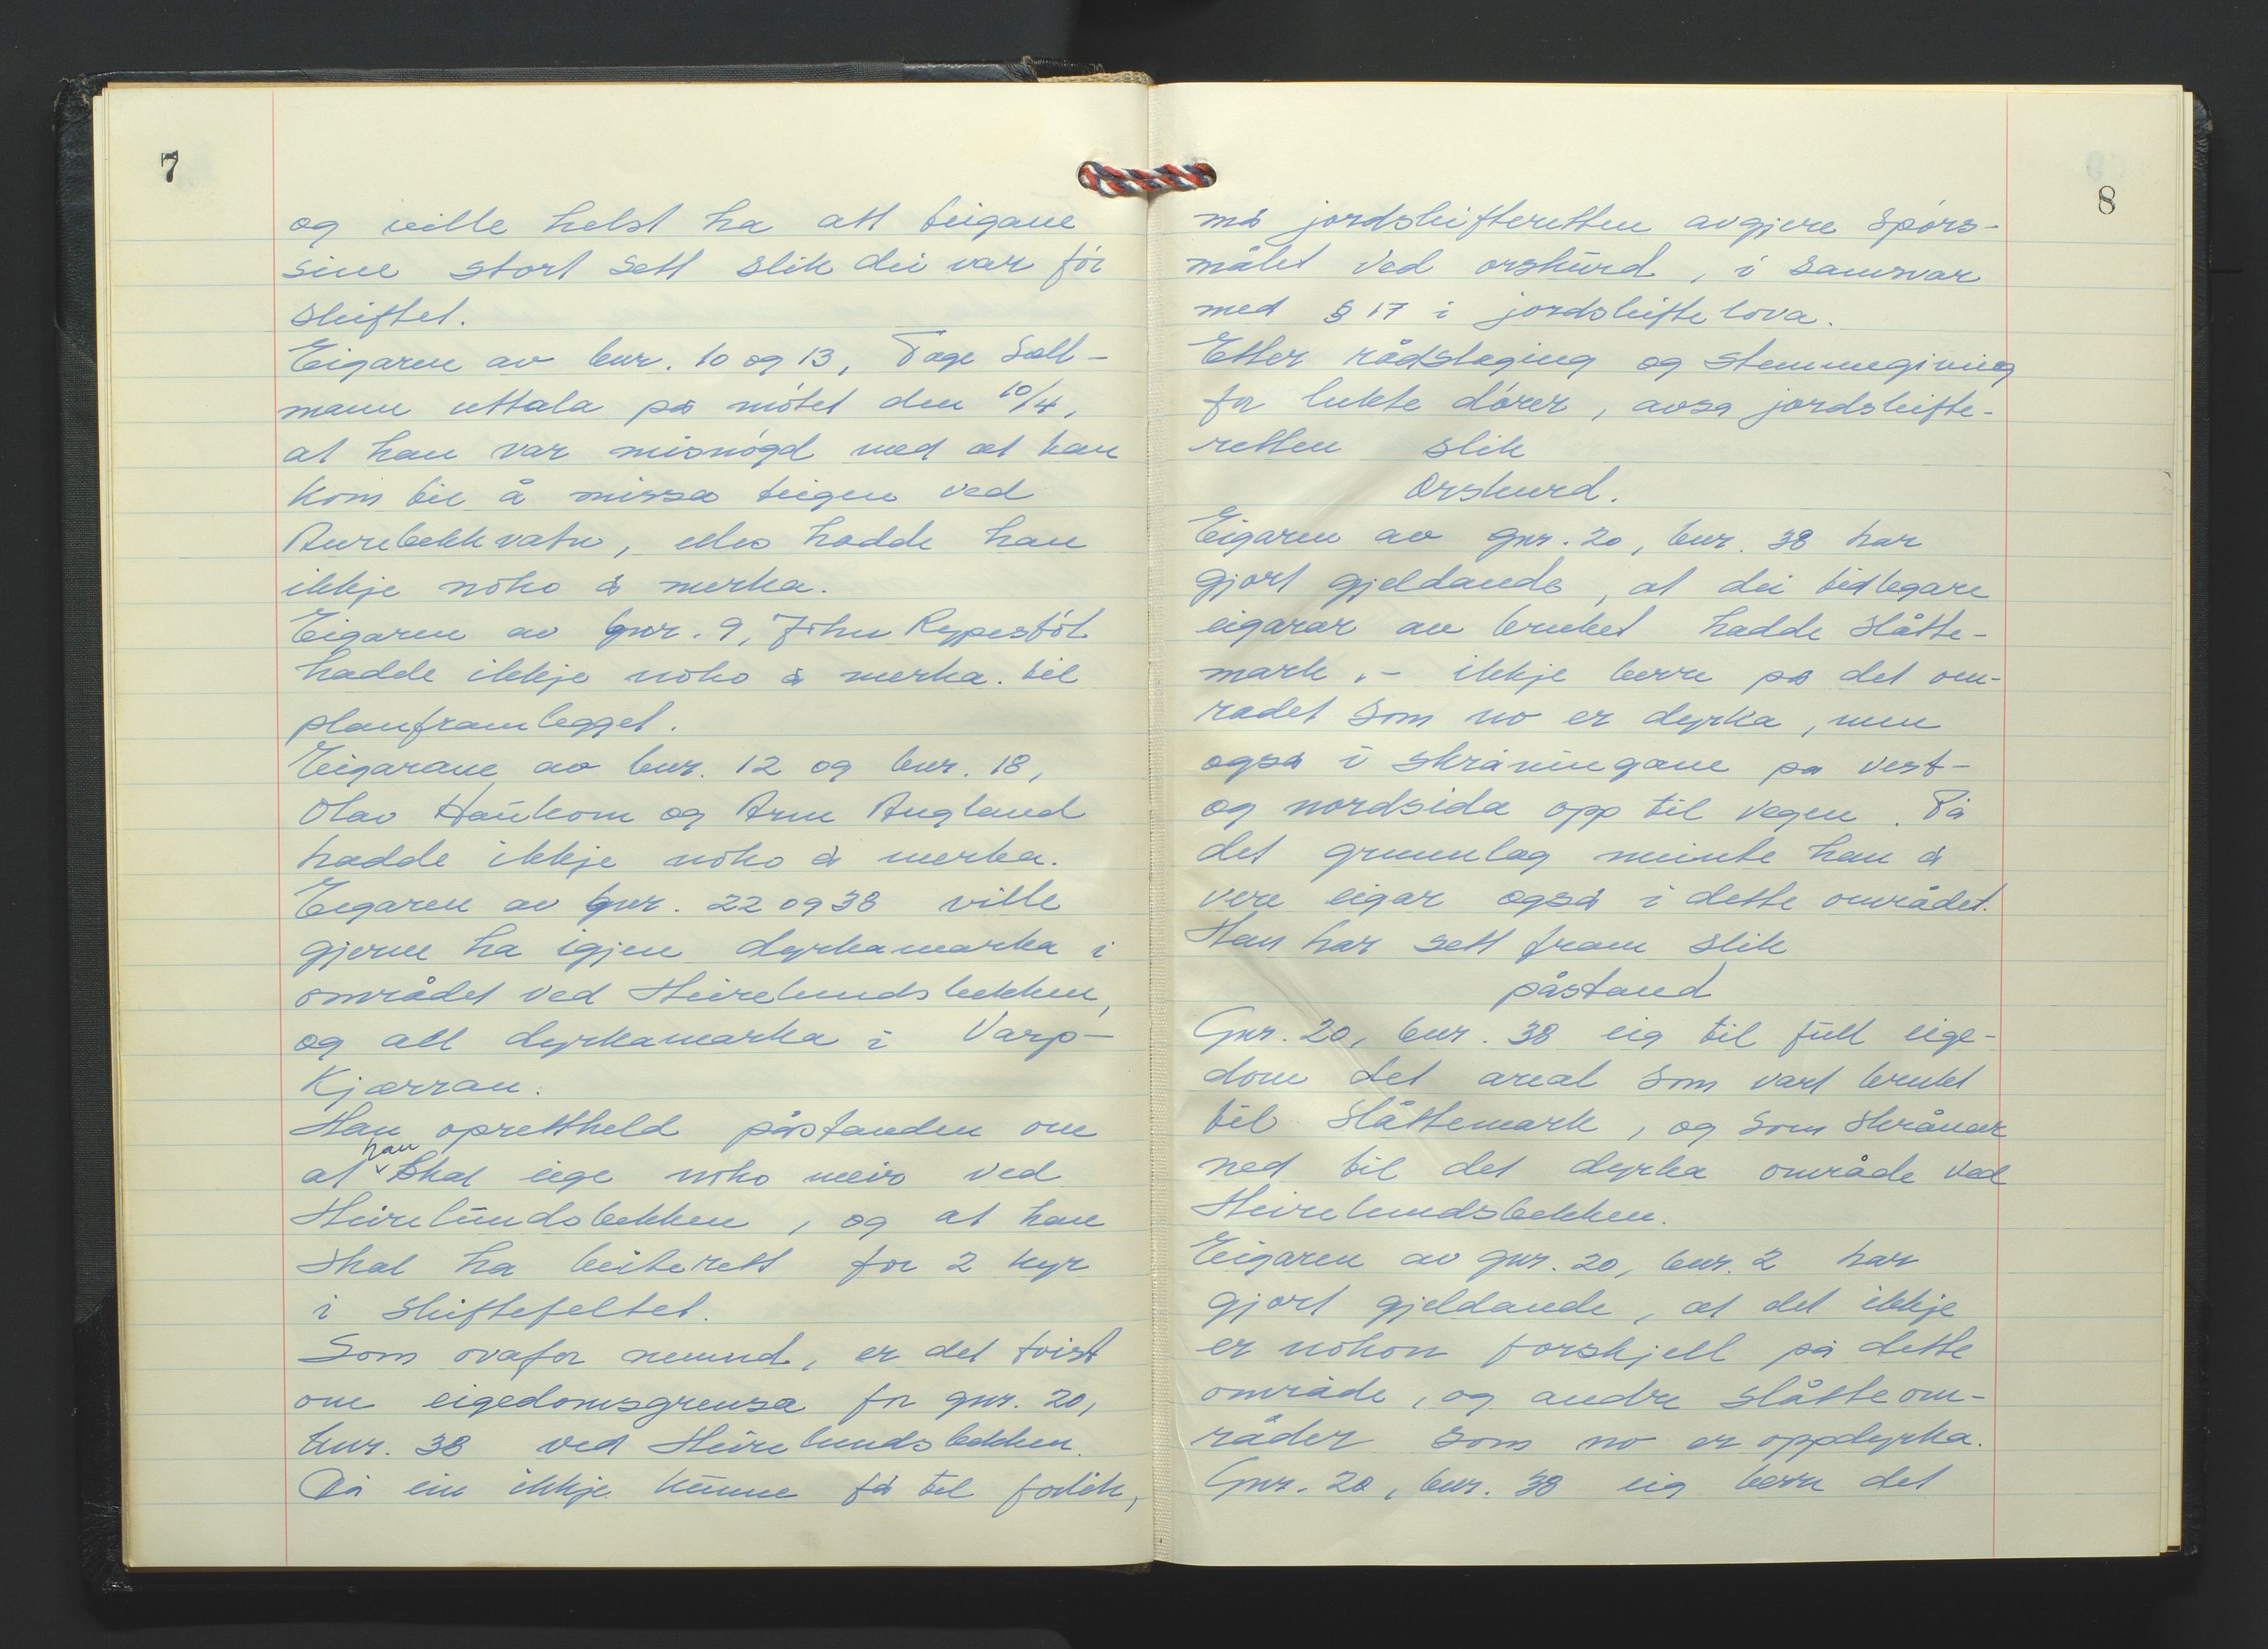 7
og ville helst ha att teigane
sine stort sett slik dei var før
skiftet.
Eigaren av bnr. 10 og 13, Tage Salt-
mann uttala på møtet den 10/4,
at han var misnøgd med at han
kom til å missa teigen ved
Aurebekkvatn, elles hadde han
ikkje noko å merka.
Eigaren av bnr. 9, John Rypestøl
hadde ikkje noko å merka til
planframlegget.
Eigarane av bnr. 12 og bnr. 18,
Olav Haukom og Arne Augland
hadde ikkje noko å merka.
Eigaren av bnr. 22 og 38 ville
gjerne ha igjen dyrkamarka i
området ved Heirelundsbekken,
og all dyrkamarka i Varp-
kjærran.
Han oprettheld påstanden om
at han skal eige noko meir ved
Heirelundsbekken, og at han
skal ha beiterett for 2 kyr
i skiftefeltet.
Som ovafor nemnd, er det tvist
om eigedomsgrensa for gnr. 20,
bnr. 38 ved Heirelundsbekken.
Då ein ikkje kunne få til forlik,
8
må jordskifteretten avgjere spørs-
målet ved orskurd, i samsvar
med § 17 i jordskiftelova.
Etter rådslaging og stemmegiving
for lukte dører, avsa jordskifte-
retten slik
Orskurd.
Eigaren av gnr. 20, bnr. 38 har
gjort gjeldande, at dei tidlegare
eigarar av bruket hadde slåtte-
mark, - ikkje berre på det om-
rådet som no er dyrka, men
også i skråningane på vest-
og nordsida opp til vegen. På
det grunnlag meinte han å
vere eigar også i dette området.
Han har sett fram slik
påstand
Gnr. 20, bnr. 38 eig til full eige-
dom det areal som vart brukt
til slåttemark, og som skrånar
ned til det dyrka område ved
Heirelundsbekken.
Eigaren av gnr. 20, bnr. 2 har
gjort gjeldande, at det ikkje
er nokon forskjell på dette
område, og andre slåtteom-
råder som no er oppdyrka.
Gnr. 20, bnr. 38 eig berre det